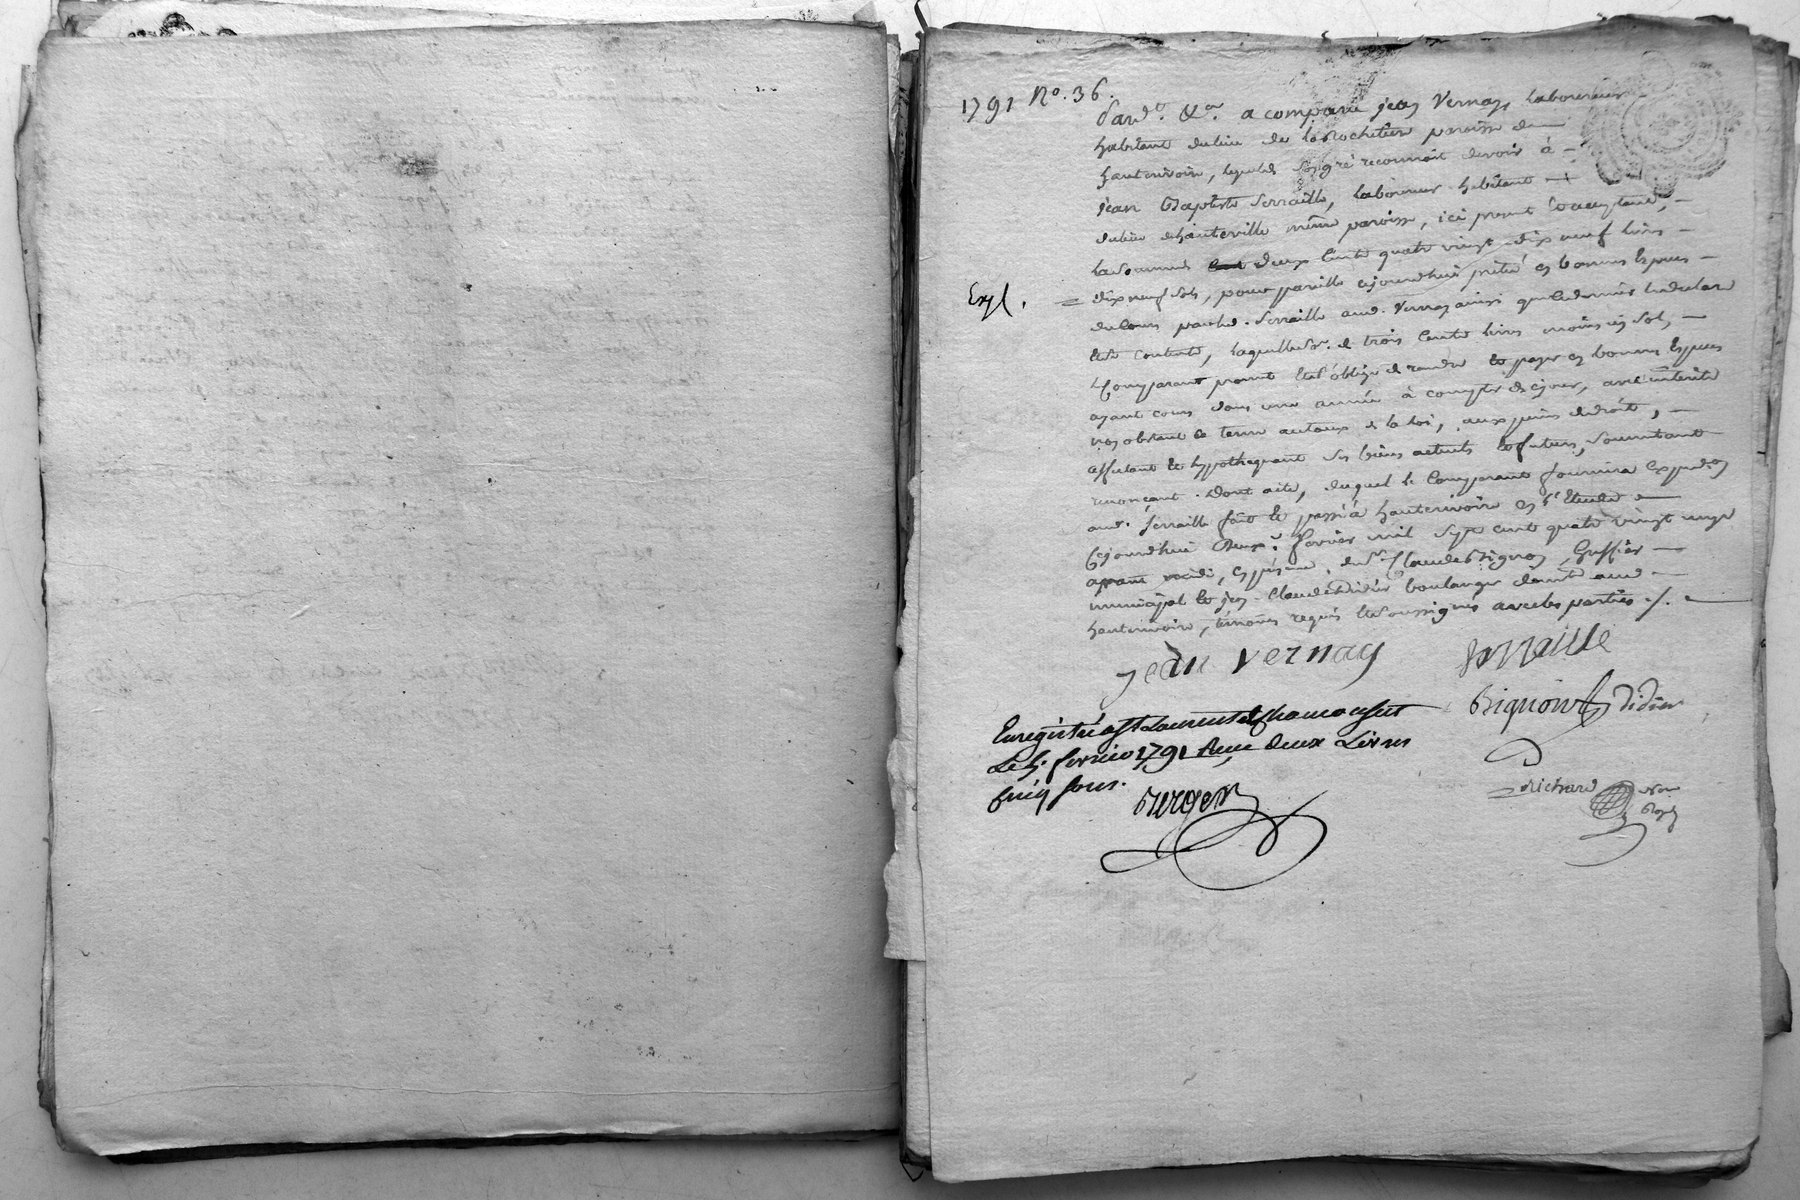 1791 No. 36.
Pard.t &a. a comparu jean Vernay, laboureur
habitant du lieu de la Rochetire paroisse de
hauterivoire, lequel de son gré reconnoit devoir à
jean Baptiste Serraille, laboureur habitant
du lieu de hauteville même paroisse, ici présent & acceptant,
la somme de deux cents quatre vingt dix neuf livres
Expl.
dix neuf sols, pour pareille ajourdhui prêté en bonnes Espèces
du Cours par led. Serraille aud. Vernay ainsi que ce dernier le déclare
& s'en contente, laquelle so.e de trois cents livres moins un sol,
le Comparant promet & s'oblige de rendre & payer en bonnes Espèces
ayant cours dans une année à compter de ce jour, avec intérêts
nonobstant ce terme au taux de la loi, aux peines de droit,
affectant & hypothéquant ses biens actuels & futurs, soumettant
renonçant. Dont acte, duquel le Comparant fournira Expedi.on
aud. Serraille fait & passé à hauterivoire en l'Etude
Cejourdhui Deux.e fevrier mil sept cent quatre vingt onze
avant midi, en présence, du Sr. Claude Bignon, Greffier
municipal & jean Claude Didier boulanger demt. aud.
hauterivoire, témoins requis & soussignés avec les parties ./.
jean Vernay Serraille
Bignon Didier
Enregistré a St Laurent de Chamousset
Le 5. fevrier 1791 Reçu deux Livres
cinq sous.
Richard Not.
Royal